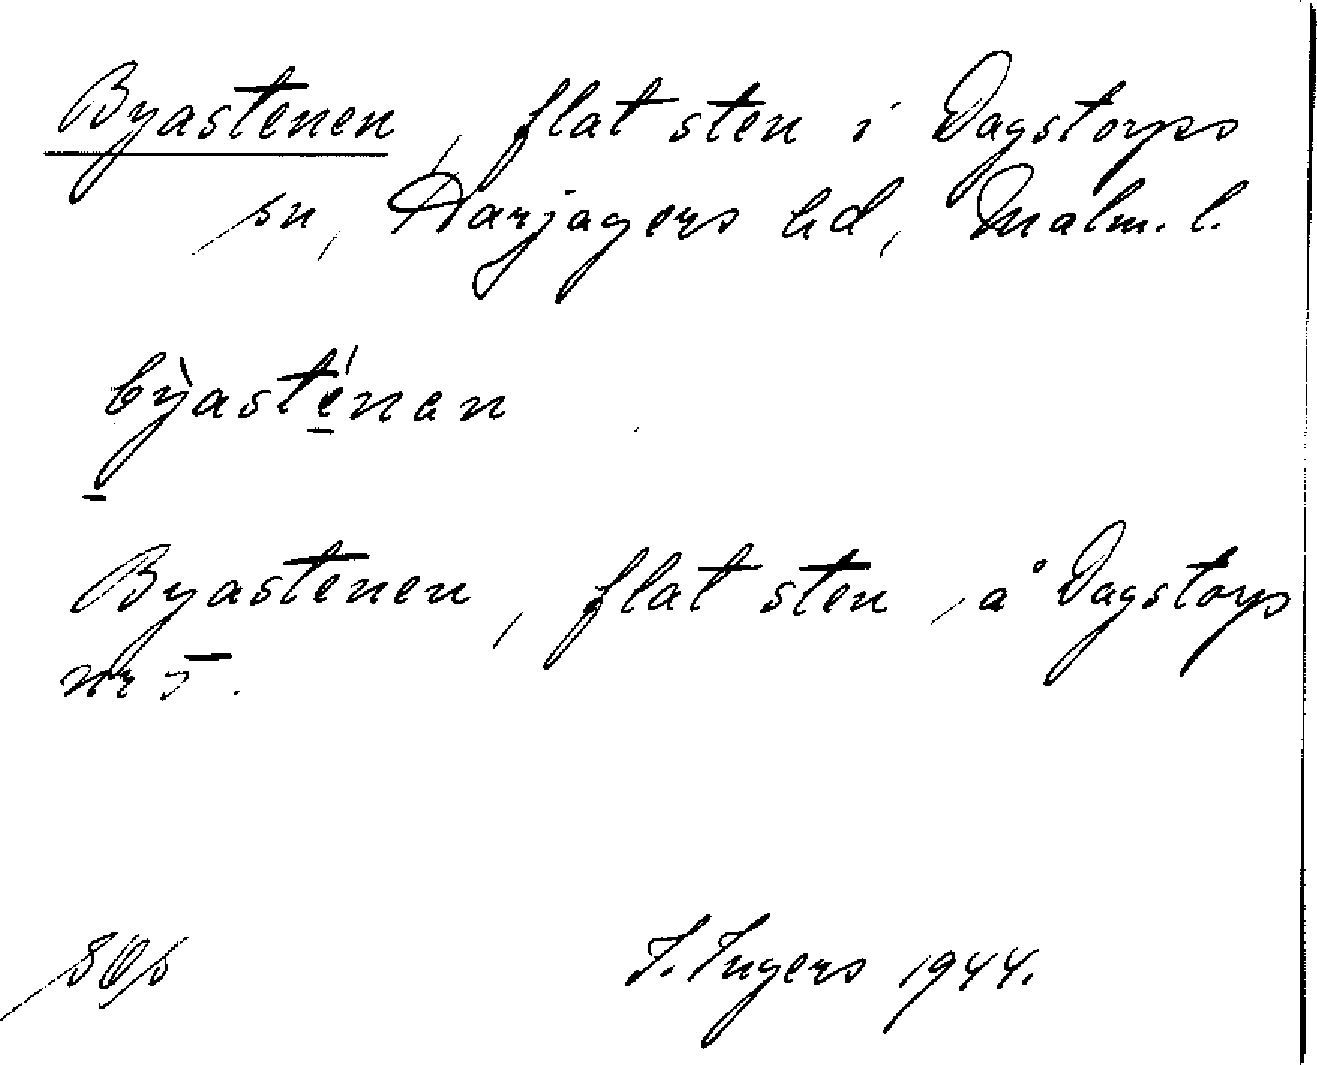 Byastenen, flat sten i Dagstorps
sn, Harjagers hd, Malm. l.
bỳasténan
Byastenen, flat sten, å Dagstorp
nr 5.
I. Ingers 1944.